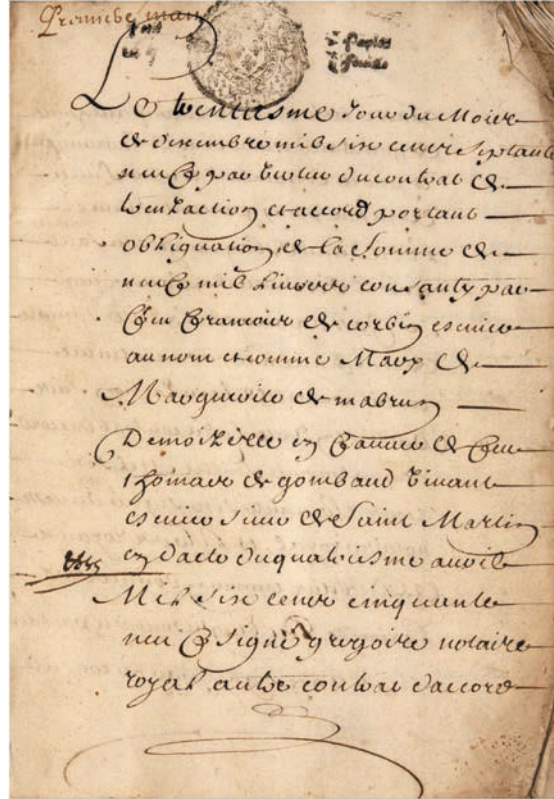 Premiere main
Le trentiesme Jour du Moies
de decembre mil six cens septante
neuf par vertu du contrat de
trenzaction et accord portant
obliguation de la somme de
neuf mil livres consanty par
feu francoies de corbie escuier
au nom et comme Mary de
Marguerite de mabrun
Demoizelle en faveur de feu
thomaes de gombaud vivant
escuier sieur de Saint Martin
en dacte du quatriesme avril
Mil six cens cinquante
neuf signé gregoire notaire
royal autre contrat daccord